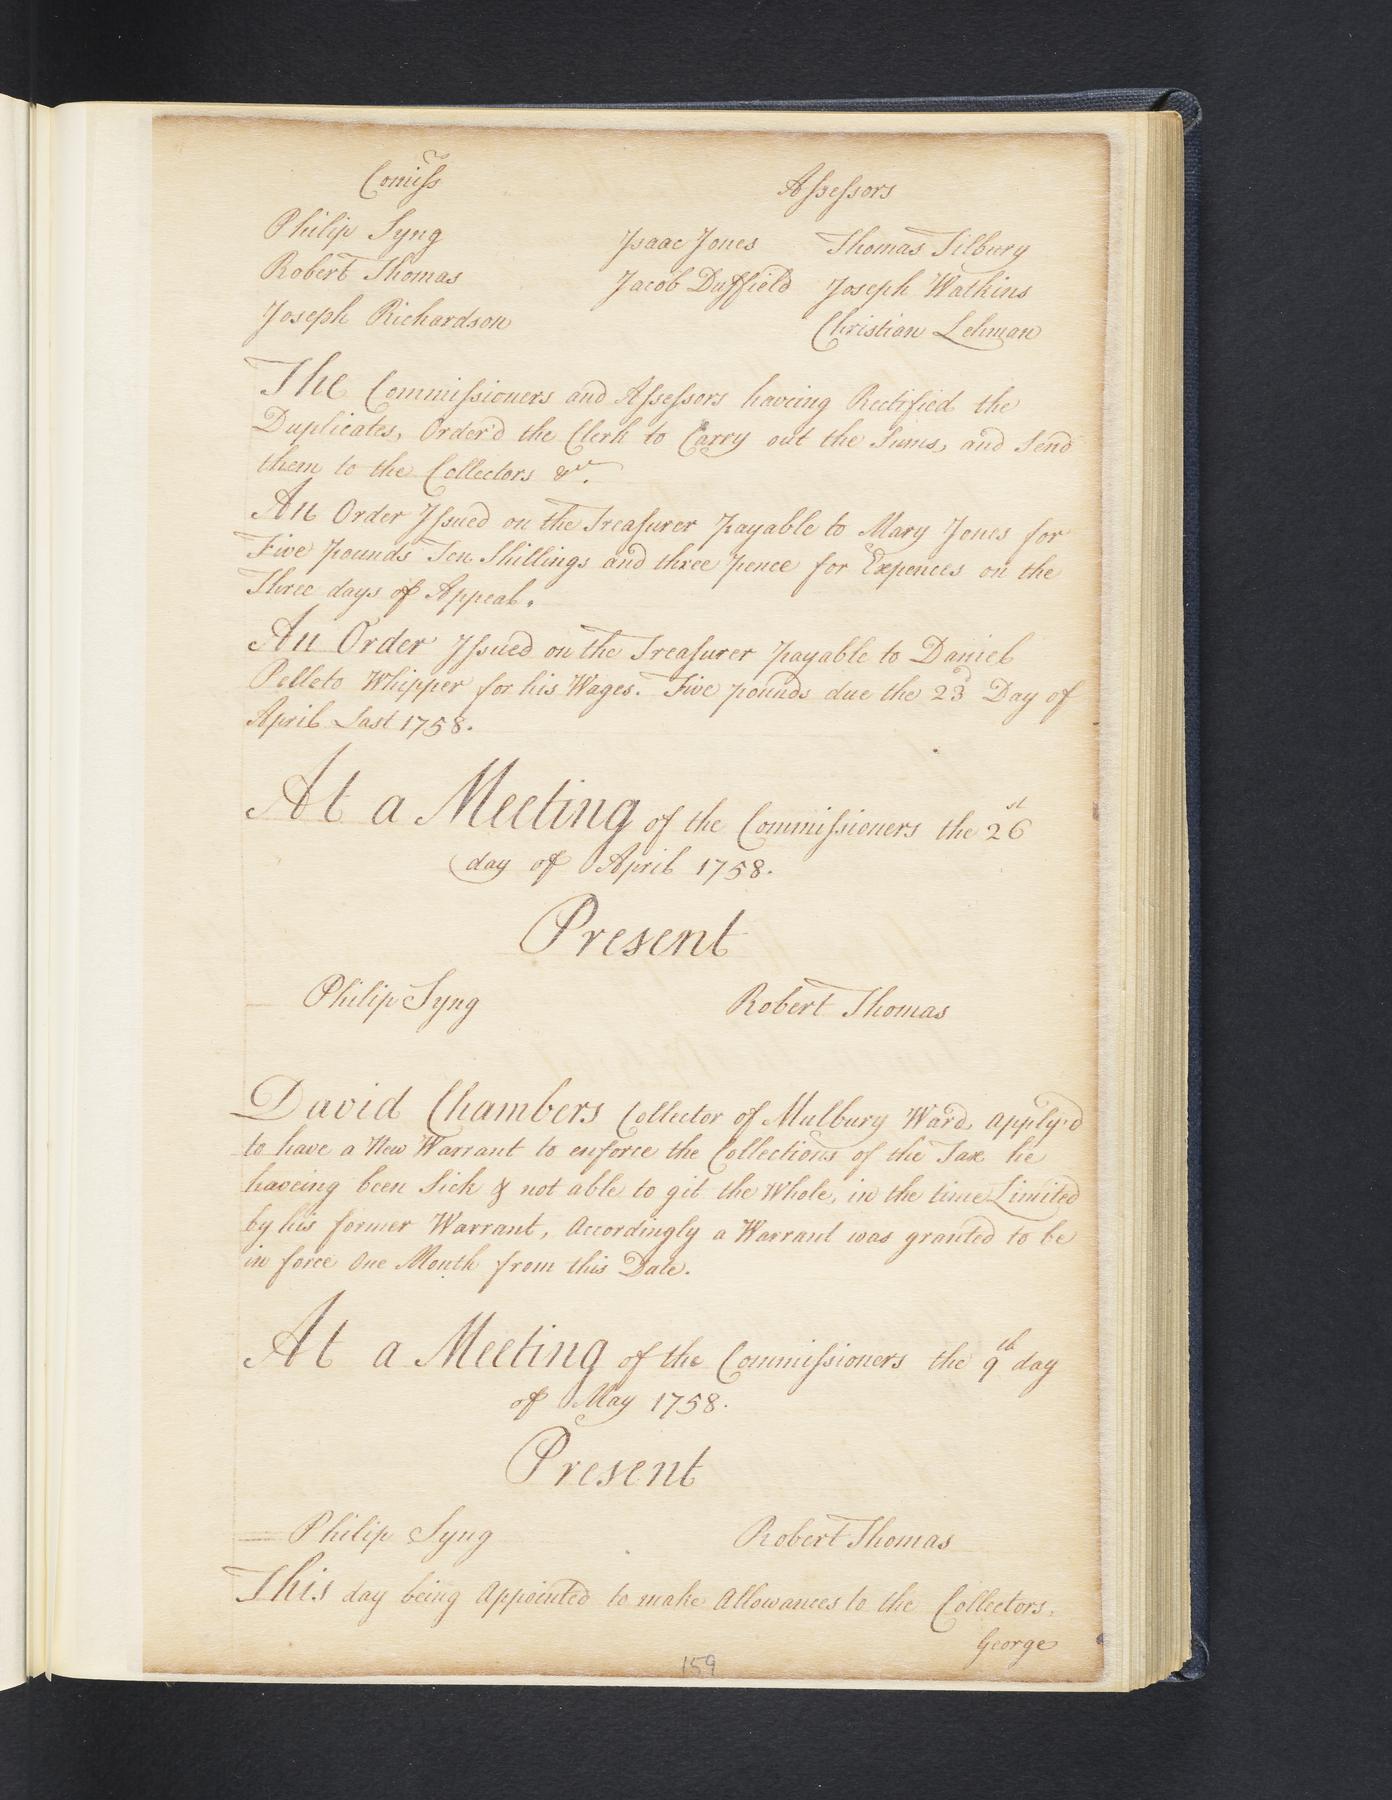 Comiss Assessors
Philip Syng Isaac Jones Thomas Tilbury
Robert Thomas Jacob Duffield Joseph Watkins
Joseph Richardson Christian Lehman
The Commissioners and Assessors haveing Rectified the
Duplicates, Order'd the Clerk to Carry out the Sums, and Send
them to the Collectors &c.
An Order Issued on the Treasurer payable to Mary Jones for
Five pounds Ten Shillings and three pence for Expences on the
Three days of Appeal.
An Order Issued on the Treasurer payable to Daniel
Pelleto Whipper for his Wages. Five pounds due the 23d Day of
April Last 1758.
At a Meeting of the Commissioners the 26st
day of April 1758.
Present
Philip Syng Robert Thomas
David Chambers Collector of Mulbury Ward, apply'd
to have a New Warrant to enforce the Collections of the Tax he
haveing been Sick & not able to git the Whole, in the time Limited
by his former Warrant, accordingly a Warrant was granted to be
in force One Month from this Date.
At a Meeting of the Commissioners the 9th day
of May 1758.
Present
Philip Syng Robert Thomas
This day being appointed to make allowances to the Collectors.
George
159